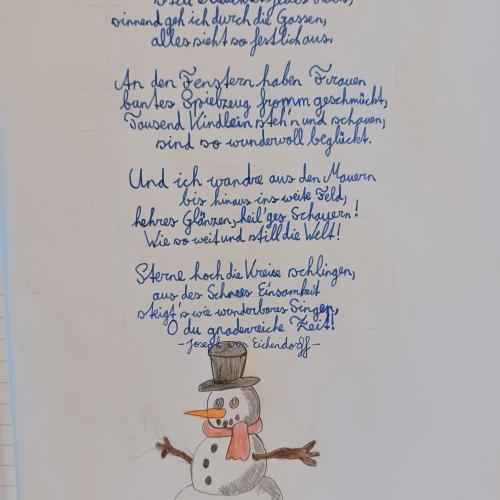 sinnend geh ich durch die Gassen,
alles sieht so festlich aus.
An den Fenstern haben Frauen
buntes Spielzeug fromm geschmückt,
Tausend Kindlein steh'n und schauen,
sind so wundervoll beglückt.
Und ich wandre aus den Mauern
bis hinaus ins weite Feld,
hehres Glänzen, heil'ges Schauern!
Wie so weit und still die Welt!
Sterne hoch die Kreise schlingen,
aus des Schnees Einsamkeit
steigt's wie wunderbares Singen,
O du gnadenreiche Zeit!
-Joseph von Eichendorff-